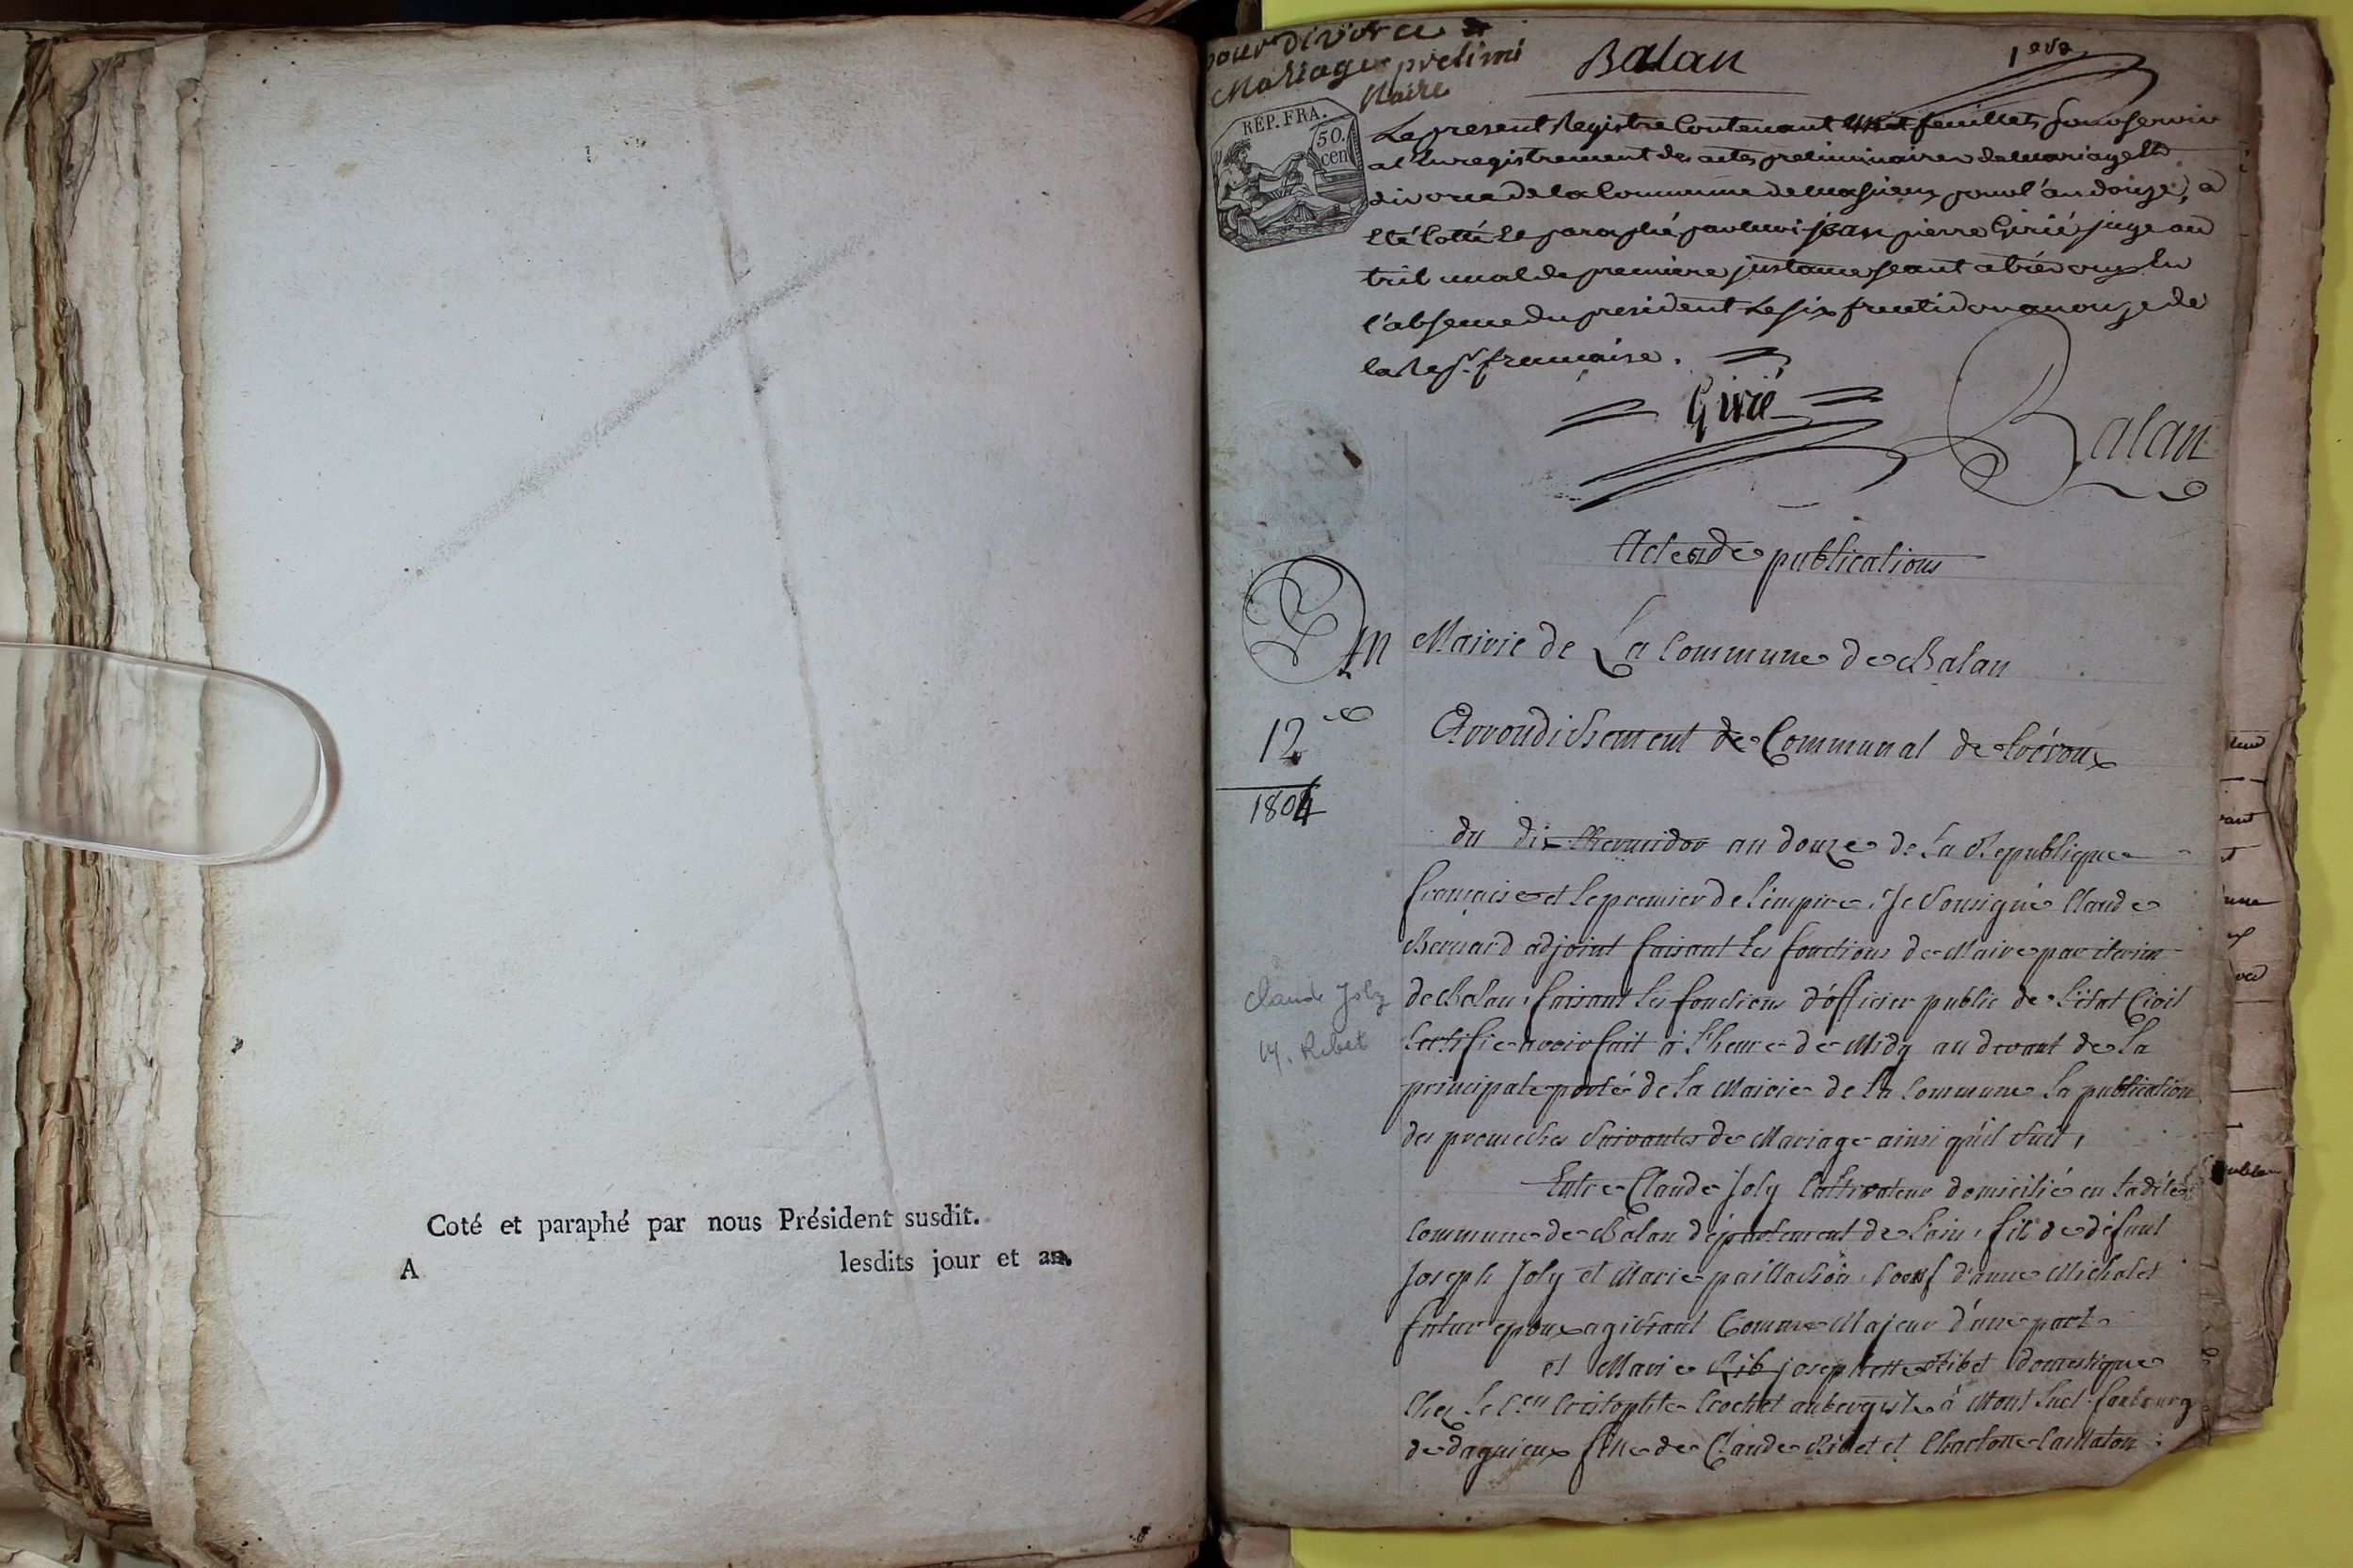 Coté et paraphé par nous Président susdit.
A lesdits jour et an.
pour divorce et
Mariage prelimi
naire
Balan
1ere
REP. FRA.
50.
cen
Le present Registre Contenant huit feuillets pour servir
a l'enregistrement des actes preliminaires de mariage et
divorce de la Commune de pour l'an douze, a
été Cotté et paraphé par nous jean pierre Girié juge au
tribunal de premiere instance seant a trévoux en
l'absence du president Le six fructidor an onze de
la Rep. francaise.
Girié
Balan
Actes de publications
An
12
1804
Mairie de La Commune de Balan
Arrondissement de Communal de trévoux
du dix thermidor an douze de La Republique
française et le premier de l'empire, Je Sousigné Claude
Bernard adjoint faisant les fonctions de Maire par iterim
de Balan, faisant les fonctions d'officier public de l'état Civil
Certifie avoir fait à l'heure de Midy au devant de la
principale porte de la Mairie de la Commune la publication
des promesses Suivantes de Mariage ainsi qu'il suit,
Claude Joly
M. Ribet
Entre Claude Joly Cultivateur domicilié en ladite
Commune de Balan département de l'ain, fils de défunt
Joseph Joly et Marie paillasson, veuf d'anne Michalet
futur epoux agissant Comme Majeur d'une part
et Marie Rib josephette Ribet domestique
Chez le Cen Cristophle Crochet aubergiste à Mont luel faubourg
de dagnieux fille de Claude Ribet et Charlotte